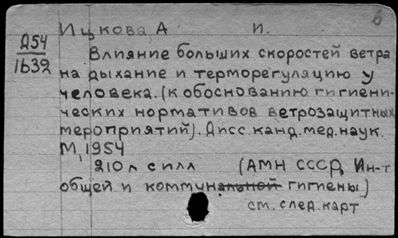 Ицкова А И.
Д54
1632
Влияние больших скоростей ветра
на дыхание и терморегуляцию у
человека. (к обоснованию гигиени-
ческих нормативов ветрозащитных
мероприятий). Дисс. канд. мед. наук.
М, 1954
210 л с илл (АМН СССР, Ин-т
общей и коммунальной гигиены.)
см. след. карт